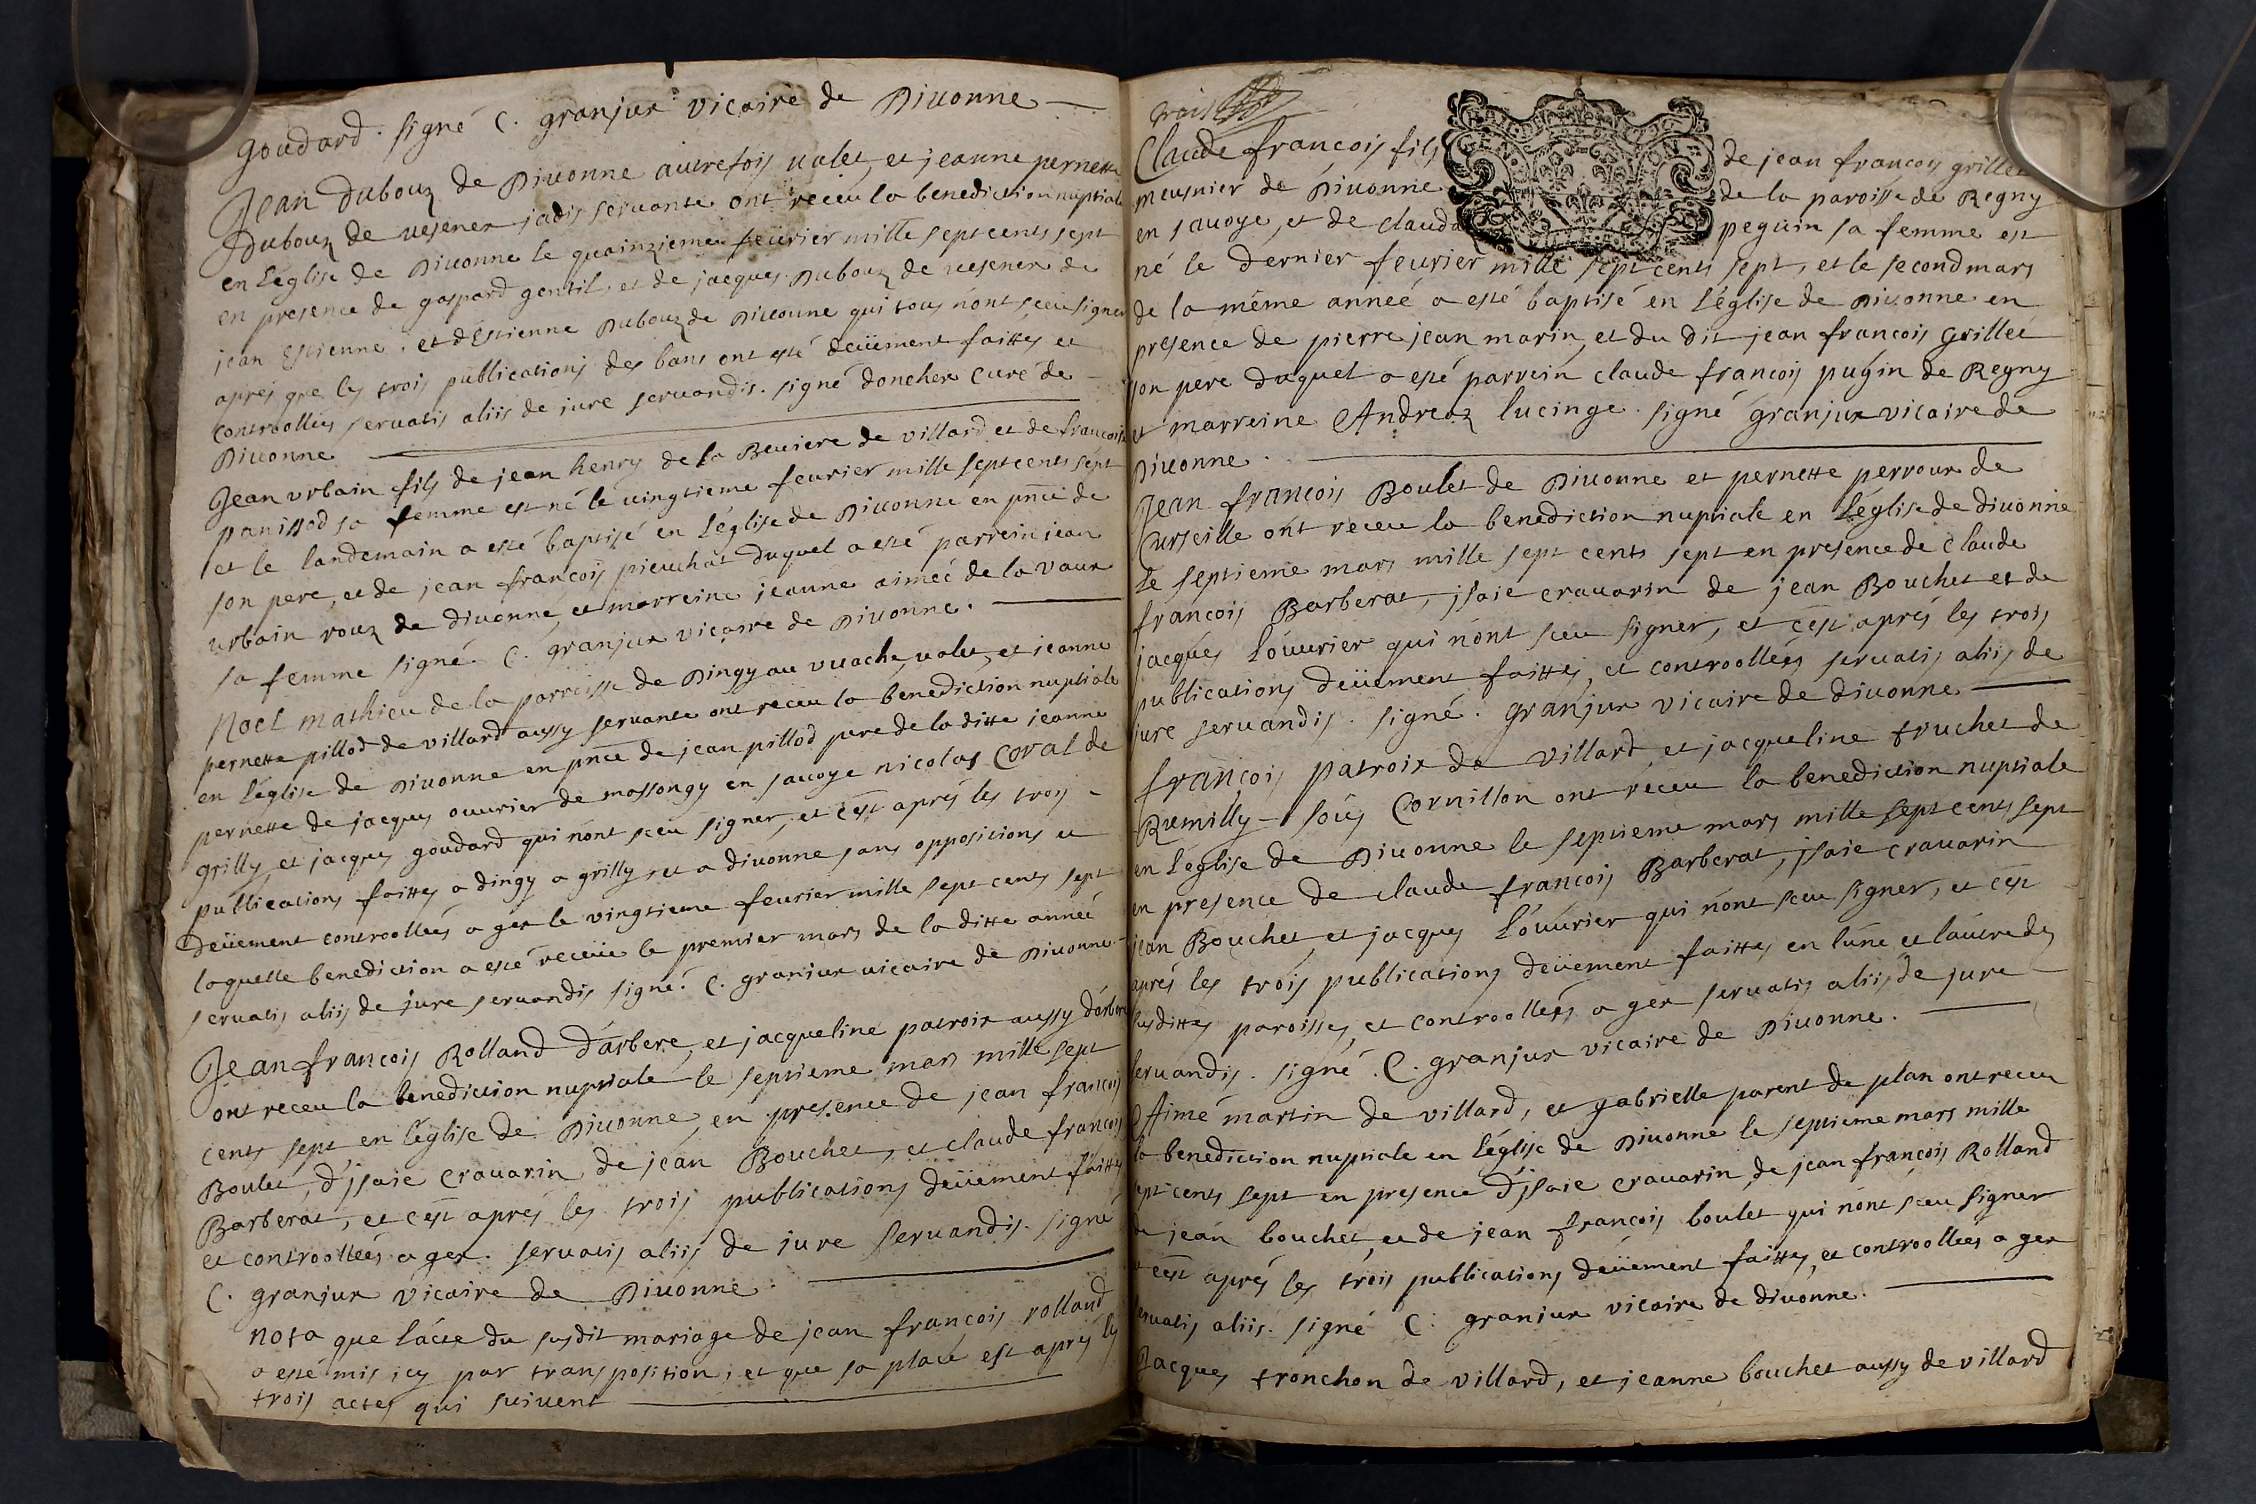 goudard. signé C. granjux vicaire de Diuonne
Jean Dubouz de Diuonne autrefois valet, et jeanne pernette
Dubouz de vesenex jadis seruante ont receu la benediction nuptiale
en l'église de Diuonne le quainzieme feurier mille sept cents sept
en presence de gaspard gentil, et de jacques Dubouz de vesenex de
jean Estienne, et d'Estienne Dubouz de Diuonne qui tous n'ont sceu signer
apres que les trois publications des bans ont esté deüement faittes et
controollées seruatis aliis de iure seruandis. signé doncher curé de
Diuonne
Jean vrbain fils de jean henry de la Beuiere de villard et de francoise
panissod sa femme est né le vingtieme feurier mille sept cents sept
et le landemain a esté baptisé en l'église de Diuonne en pnce de
son pere, et de jean françois pieuchat duquel a esté parrein jean
vrbain rouz de diuonne, et marreine jeanne aimeé de la vaux
sa femme signé. C. granjux vicaire de Diuonne.
Noel mathieu de la parroisse de Dingy au vuache, valet, et jeanne
pernette pillod de villard aussy seruante ont receu la benediction nuptiale
en l'église de Diuonne en pnce de jean pillod pere de la ditte jeanne
pernette de jacques ouurier de massongy en sauoye nicolas Coral de
grilly, et jacques goudard qui n'ont sceu signer, et c'est aprés les trois
publications faittes a dingy a grilly, et a diuonne sans oppositions et
deüement controollées a gex le vingtieme feurier mille sept cents sept
laquelle benediction a esté receüe le premier mars de la ditte année
seruatis aliis de jure seruandis signé. C. granjux vicaire de Diuonne
Jean françois Rolland d'arbere, et jacqueline patroix aussy d'arbere
ont receu la benediction nuptiale le septieme mars mille sept
cents sept en l'église de Diuonne, en presence de jean françois
Boulet, d'jsaie crauarin de jean Bouchet, et claude françois
Barberat, et c'est aprés les trois publications deüement faittes
et controollées a gex. seruatis aliis de iure seruandis. signé
C. granjux vicaire de Diuonne.
nota que l'acte du susdit mariage de jean françois rolland
a esté mis icy par transposition, et que sa place est aprés les
trois actes qui suiuent
trois
Claude françois fils de jean françois grillet
meusnier de Diuonne de la paroisse de Regny
en sauoye, et de clauda peguin sa femme est
né le dernier feurier mille sept cents sept, et le second mars
de la même anneé a esté baptisé en l'église de Diuonne en
presence de pierre jean marin, et du dit jean francois grillet
son pere duquel a esté parrein claude françois pugin de Regny
et marreine Andreaz lucinge. signé granjux vicaire de
Diuonne.
Jean françois Boulet de Diuonne et pernette perroux de
Curseille ont receu la benediction nuptiale en l'église de diuonne
le septieme mars mille sept cents sept en presence de claude
francois Barberat, jsaie crauarin de jean Bouchet et de
jacques l'ouurier qui n'ont sceu signer, et c'est aprés les trois
publications deüement faittes, et controollées seruatis aliis de
jure seruandis. signé. granjux vicaire de diuonne
françois patroix de villard et jacqueline truchet de
Rumilly sous Cornillon ont receu la benediction nuptiale
en l'église de Diuonne le septieme mars mille sept cents sept
en presence de claude françois Barberat, jsaie crauarin
jean Bouchet, et jacques l'ouurier qui n'ont sceu signer, et c'est
aprés les trois publications deüement faittes en l'une et l'autre des
susdittes paroisses, et controollées a gex seruatis aliis de jure
seruandis. signé. C. granjux vicaire de Diuonne.
Aimé martin de villard, et gabrielle parent de plan ont receu
la benediction nuptiale en l'église de Diuonne le septieme mars mille
sept cents sept en presence d'jsaie crauarin, de jean françois Rolland
de jean bouchet, et de jean françois boulet qui n'ont sceu signer
et c'est aprés les trois publications deüement faittes, et controollées a gex
seruatis aliis. signé C. granjux vicaire de diuonne.
Jacques tronchon de villard, et jeanne bouchet aussy de villard